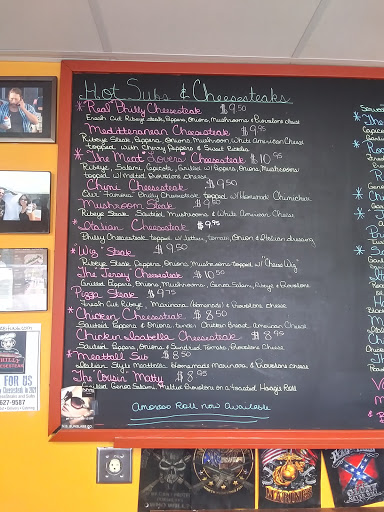 Hot Subs & Cheesesteaks
*"Real" Philly Cheesesteak $9.50
Fresh Cut Ribeye steak, Peppers, Onions, Mushrooms & Provolone cheese
Meditteranean Cheesesteak $9.95
Ribeye Steak, Peppers, Onions, Mushroom, White American Cheese
topped with Cherry Peppers & Sweet
*"The Meat" Lovers' Cheesesteak $10.95
Ribeye, Salami, Capicola, Grilled w/ Peppers, Onions, Mushrooms
topped w/ melted Provolone cheese
Chimi Cheesesteak $9.50
Our Famous Philly Cheesesteak topped w/ Homemade Chimichuri
Mushroom Steak $9.50
Ribeye Steak Sauteed Mushrooms & White American Cheese
*Italian Cheesesteak $9.95
Philly Cheesesteak topped w/ lettuce, tomato, Onion & Italian dressing
*Wiz Steak $9.50
Ribeye Steak, Peppers, Onions, Mushrooms topped w/ "Cheese Wiz"
The Jersey Cheesesteak $10.50
Grilled Peppers, Onions, Mushrooms, Genoa Salami, Ribeye & Provolone
Pizza Steak $9.75
Fresh Cut Ribeye, Marinara (homemade) & Provolone cheese
*Chicken Cheesesteak $8.50
Sauteed Peppers & Onions, tender Chicken Breast, American Cheese
Chicken Isabella Cheesesteak $8.95
Sauteed Peppers, Onions & Sundried Tomato, Provolone Cheese
*Meatball Sub $8.50
Italian Style Meatballs, Homemade Marinara, & Provolone cheese
The "Cousin" Matty $8.95
Grilled Genoa Salami, Melted Provolone on a toasted Hoagie Roll
Amoroso Roll now Available
FOR US
627-9587
MARINES